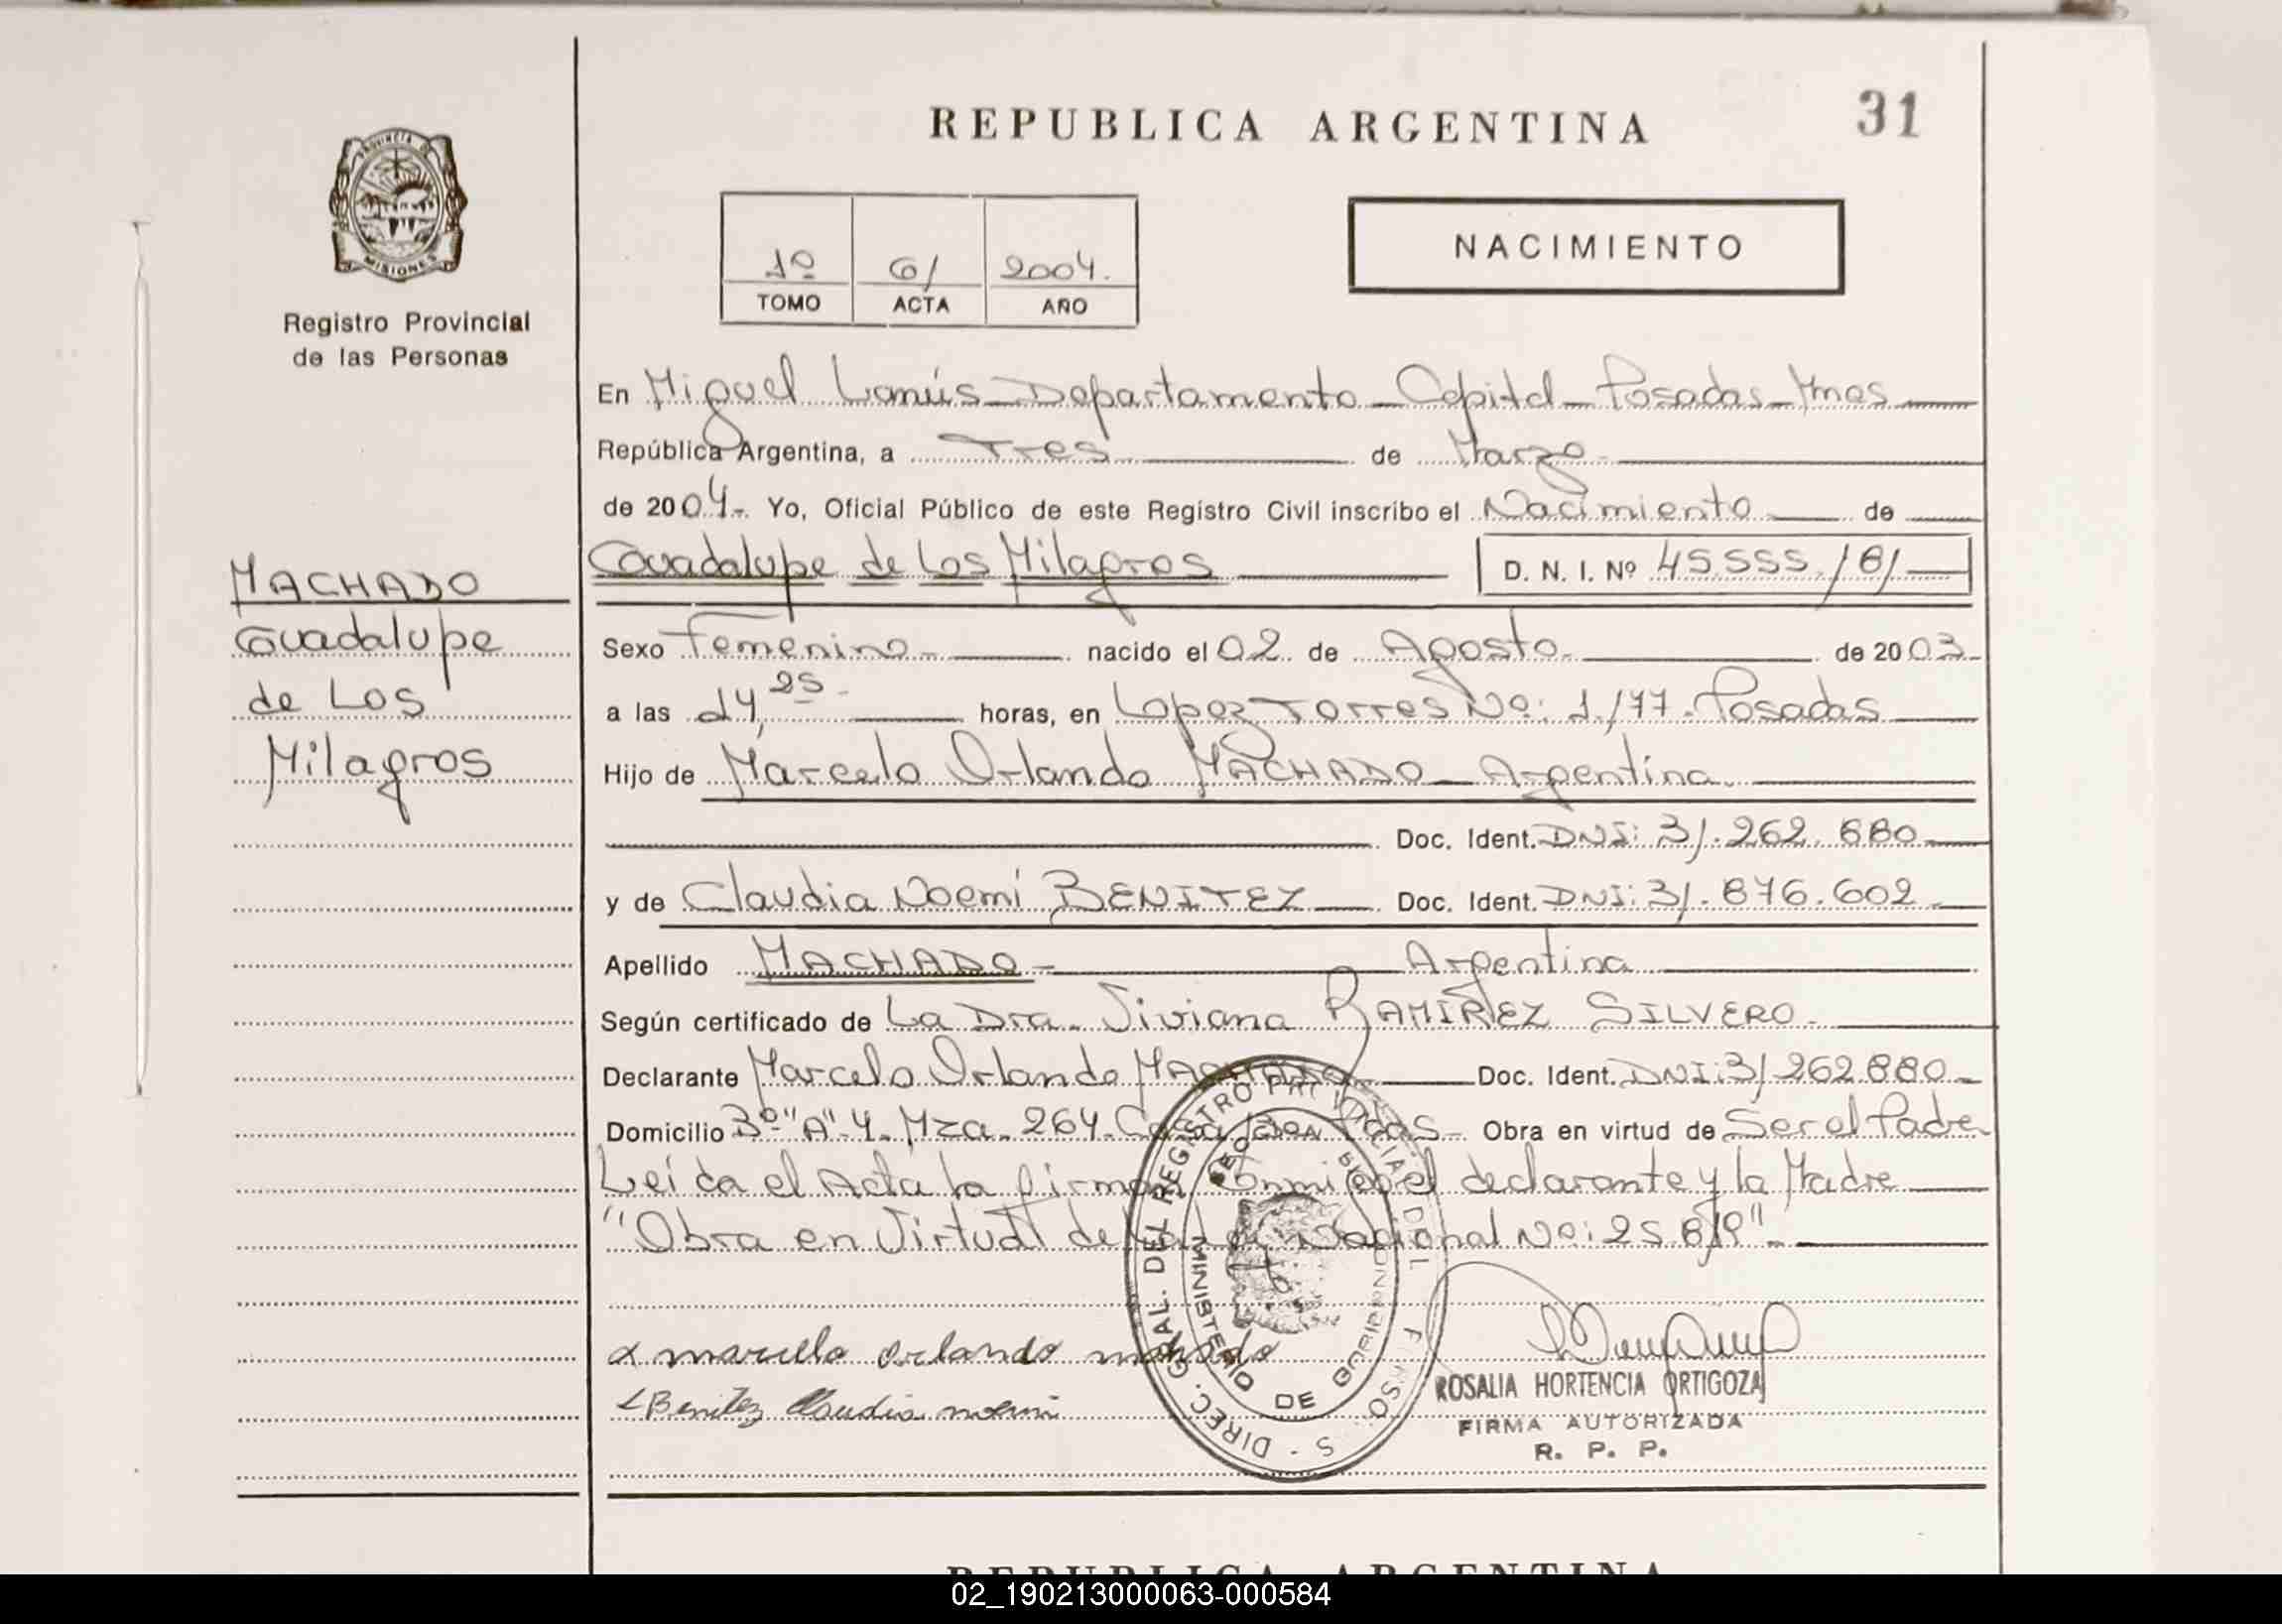 REPUBLICA ARGENTINA
31
PROVINCIA DE
MISIONES
Registro Provincial
de las Personas
1º 61 2004.
TOMO ACTA AÑO
NACIMIENTO
En Miguel Lanús - Departamento - Capital - Posadas - Mnes
República Argentina, a Tres de Marzo
de 2004.- Yo, Oficial Público de este Registro Civil inscribo el Nacimiento de
Guadalupe de Los Milagros D. N. I. Nº 45.555.181
Sexo Femenino - nacido el 02 de Agosto - de 2003 -
a las 14,25 - horas, en Lopez Torres Nº: 1.177 - Posadas
Hijo de Marcelo Orlando MACHADO - Argentina
Doc. Ident. DNI: 31.262.880
y de Claudia Noemí BENITEZ Doc. Ident. DNI: 31.876.602
Apellido MACHADO - Argentina
Según certificado de La Dra. Viviana RAMIREZ SILVERO -
Declarante Marcelo Orlando MACHADO Doc. Ident. DNI: 31.262.880 -
Domicilio 3º "A" 4. Mza. 264. Casa Pdas - Obra en virtud de Ser el Padre
Leída el Acta la firman Conmigo el declarante y la Madre
"Obra en Virtud de la Ley Nacional Nº: 25.819" -
MACHADO
Guadalupe
de Los
Milagros
marcelo orlando machado
Benitez Claudia noemi
DIREC. GRAL. DEL REGISTRO PROVINCIAL
MINISTERIO DE GOBIERNO
ROSALIA HORTENCIA ORTIGOZA
FIRMA AUTORIZADA
R. P. P.
REPUBLICA ARGENTINA
02_190213000063-000584